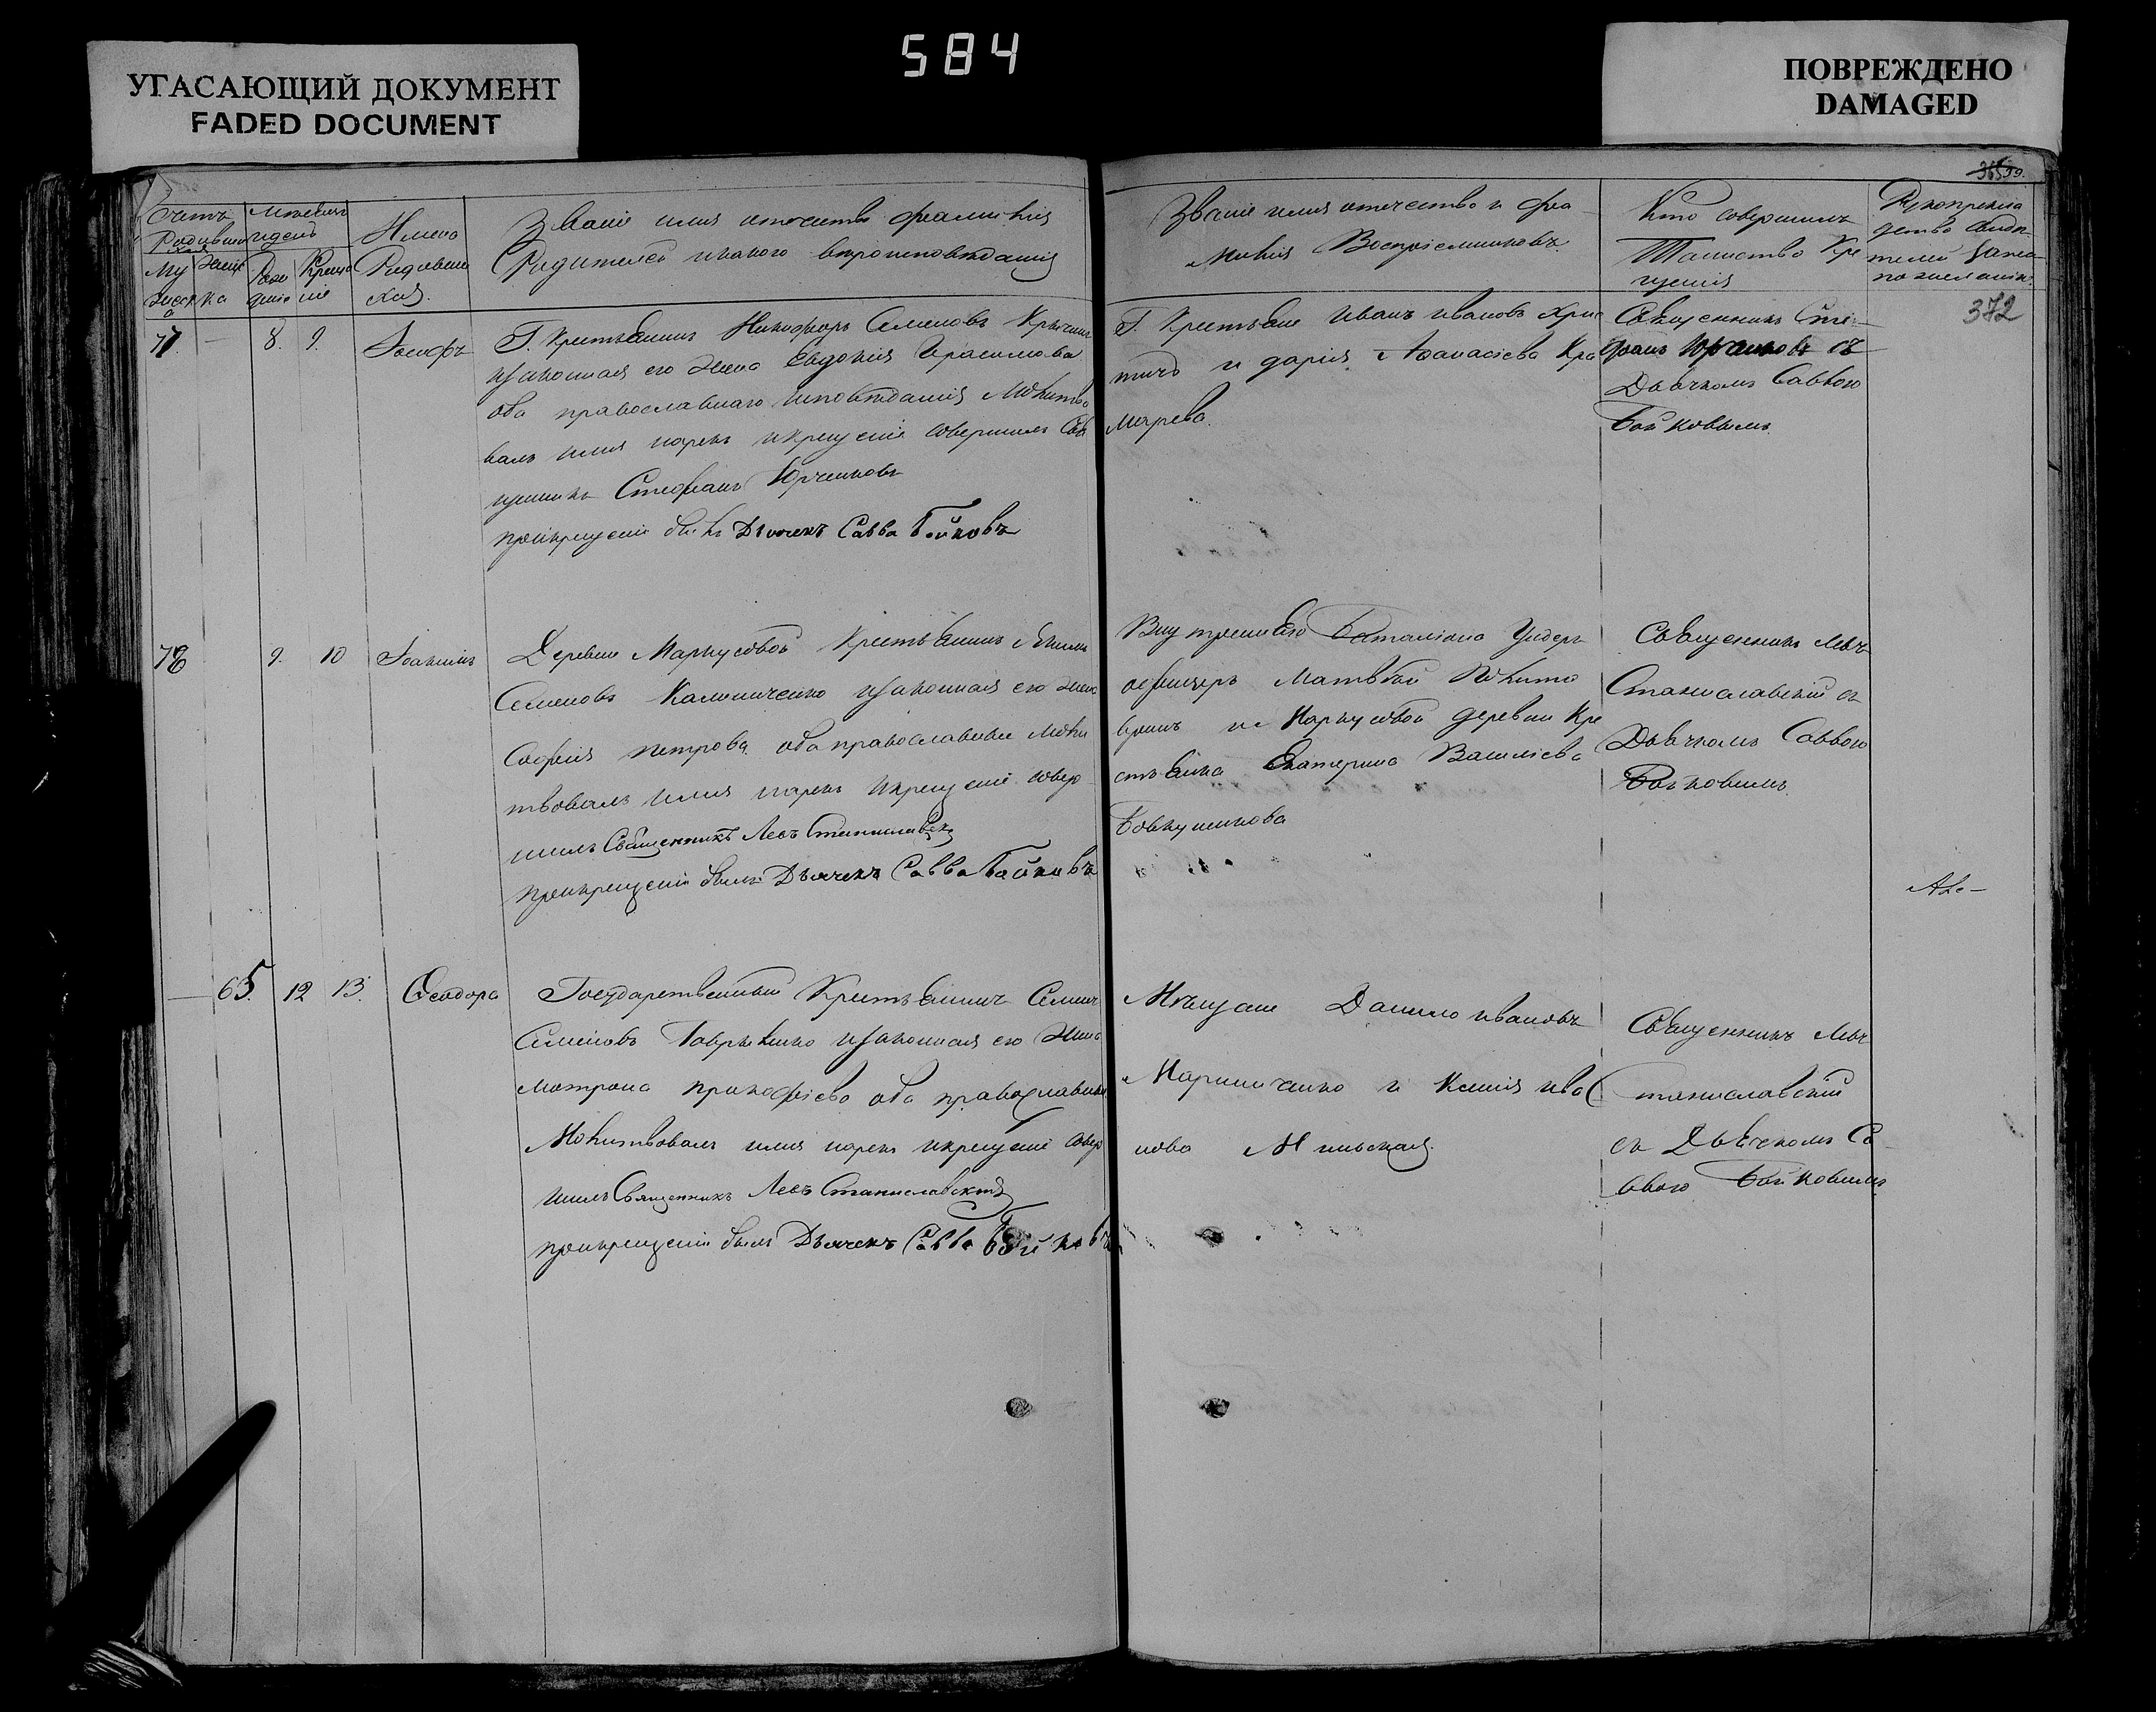 584
УГАСАЮЩИЙ ДОКУМЕНТ
FADED DOCUMENT
ПОВРЕЖДЕНО
DAMAGED
Счетъ
Родивших
ся
Му
жеск
а
Женс
ка
Мѣсяцъ
и день
Рож
деніе
Креще
ніе
Имена
Родивши
хся.
Званіе имя отечество фамилія
Родителей и какого вѣроисповѣданія
Званіе имя отечество и фа
милія Воспріемниковъ
Кто совершилъ
Таинство Кре
щенія
Рукоприкла
детво свидѣ
телей записи
по желанію.
372
77. — 8. 9. Іосифъ
Г. Крестьянинъ Никифоръ Семеновъ
и законная его жена Евдокія Герасимова
оба православнаго исповѣданія Молитво
валъ имя нарекъ и крещеніе совершилъ Свя
щенникъ Стефанъ Юрченковъ
при крещеніи былъ Дьячекъ Савва Бойковъ
Г. Крестьяне Иванъ Ивановъ Хри
и Дарія Афанасіева Кра
марева.
Священникъ Сте
фанъ съ
Дьячкомъ Саввою
Бойковымъ.
78 9. 10 Іоакимъ
Деревни Маркусовой Крестьянинъ
Семеновъ Калиниченко и законная его жена
Софія Петрова оба православные Моли
твовалъ имя нарекъ и крещеніе совер
шилъ Священникъ Левъ Станиславскій
при крещеніи былъ Дьячекъ Савва Бойковъ
Внутреннего Баталіона Ундеръ
офицеръ Матвѣй Никито
и Маркусовой деревни Кре
стьянка Екатерина Василіева
Священникъ Левъ
Станиславскій съ
Дьячкомъ Саввою
Бойковымъ.
— 65. 12 13. Феодора
Государственный Крестьянинъ Семенъ
Семеновъ и законная его жена
Мотрона Прокофіева оба православные
Молитвовалъ имя нарекъ и крещеніе совер
шилъ Священникъ Левъ Станиславскій
при крещеніи былъ Дьячекъ Савва Бойковъ
Мѣщане Данило Ивановъ
и Ксенія Ива
нова
Священникъ Левъ
Станиславскій
съ Дьячкомъ Са
ввою Бойковымъ